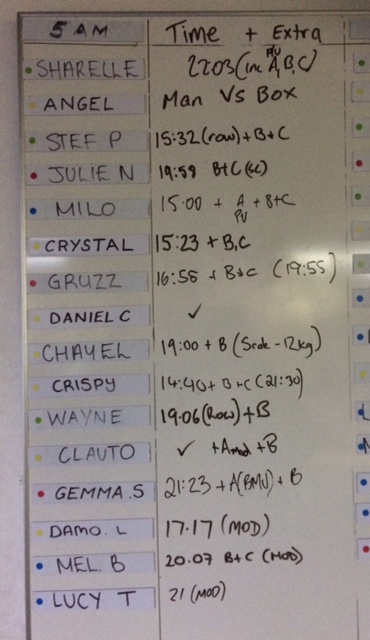 5 AM Time + Extra
SHARELLE 2203 (inc A,B,C)
ANGEL Man Vs Box
STEF P 15:32 (row) + B+C
JULIE N 19:58 B+C (sc)
MILO 15:00 + A + B+C
PU
CRYSTAL 15:23 + B,C
GRUZZ 16:55 + B+C (19:55)
DANIEL C ✓
CHAYEL 19:00 + B (5rde - 12kg)
CRISPY 14:40 + B+C (21:30)
WAYNE 19.06 (Row) + B
CLAUTO ✓ + Amod + B
GEMMA.S 21:23 + A (BMU) + B
DAMO. L 17.17 (MOD)
MEL. B 20.07 B+C (MOD)
LUCY T 21 (MOD)